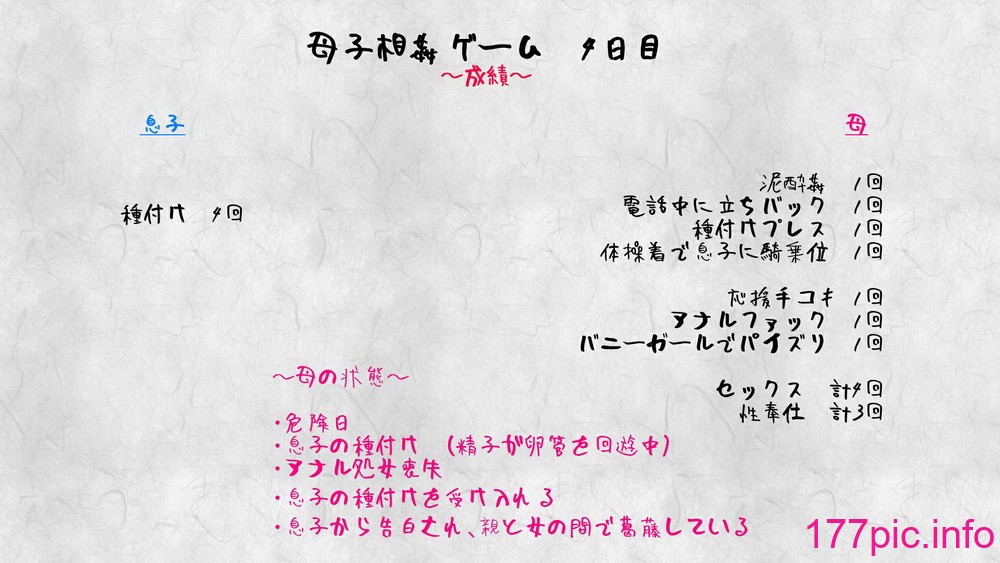 母子相姦ゲーム 4日目
～成績～
息子
母
種付け 4回
泥酔姦 1回
電話中に立ちバック 1回
種付けプレス 1回
体操着で息子に騎乗位 1回
応援手コキ 1回
アナルファック 1回
バニーガールでパイズリ 1回
セックス 計4回
性奉仕 計3回
～母の状態～
・危険日
・息子の種付け （精子が卵管を回遊中）
・アナル処女喪失
・息子の種付けを受け入れる
・息子から告白され、親と女の間で葛藤している
177pic.info